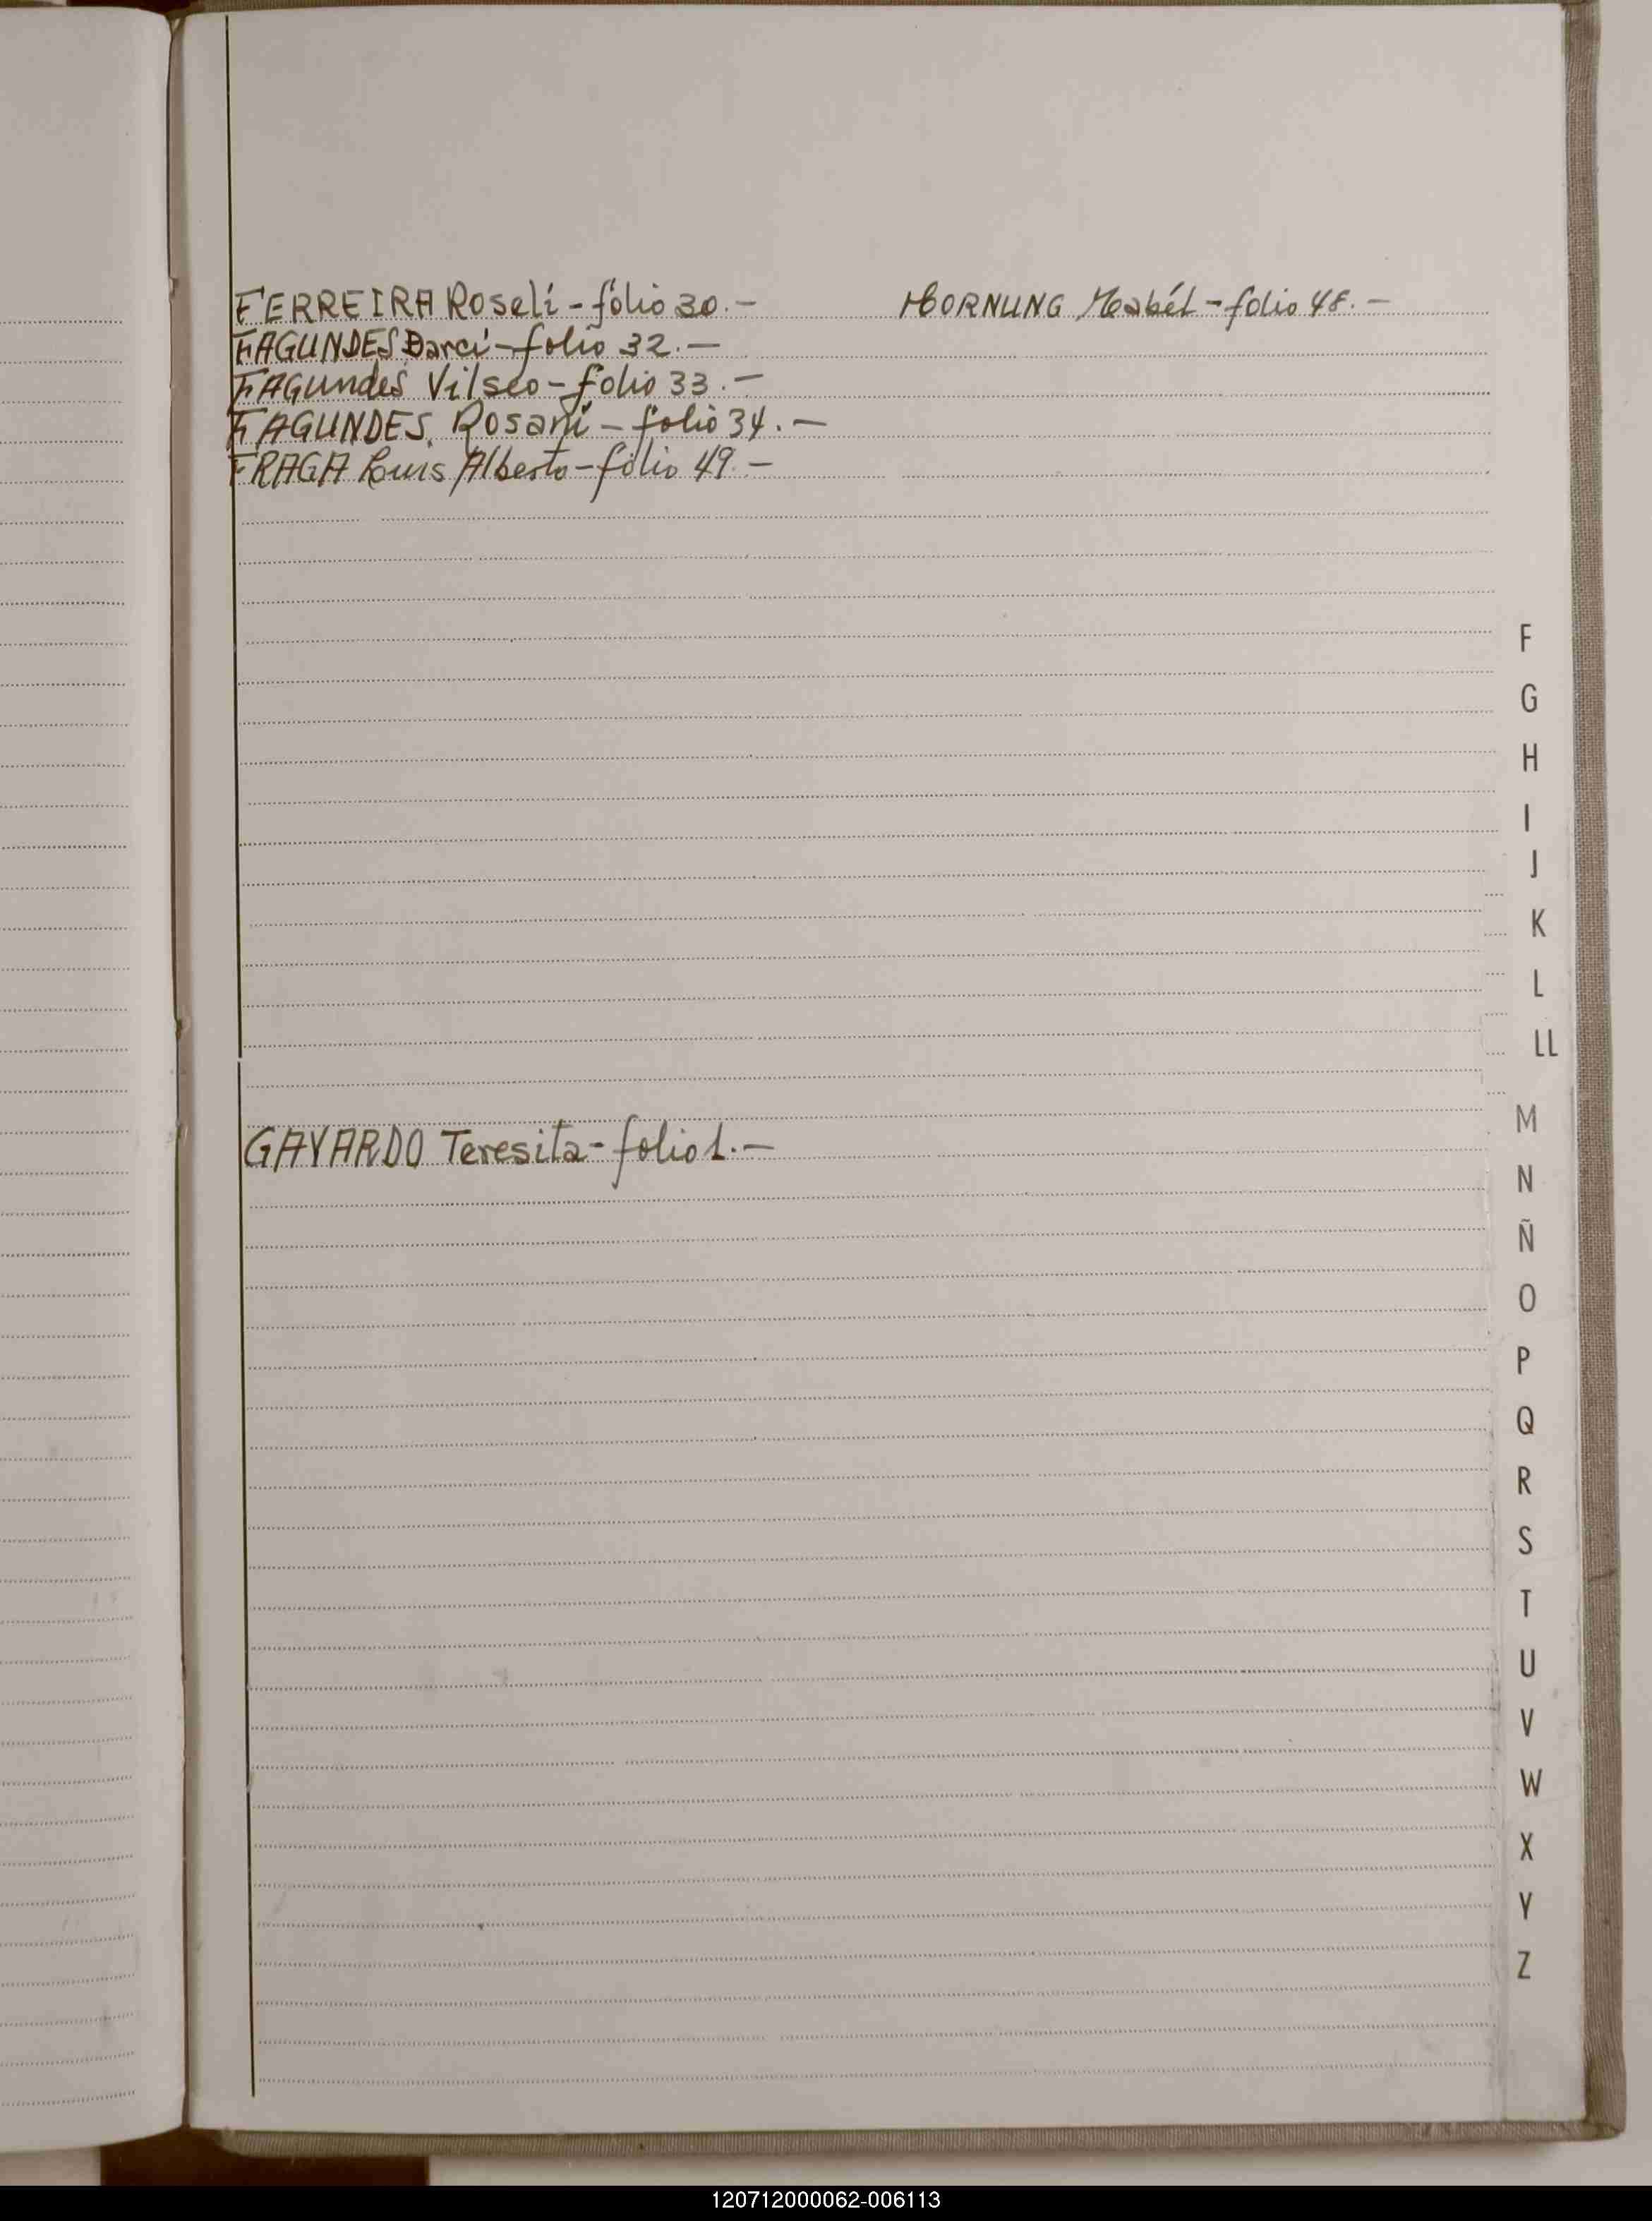 FERREIRA Roselí - folio 30. -
FAGUNDES Darcí - folio 32. -
FAGundes Vilseo - folio 33. -
FAGUNDES, Rosani - folio 34. -
FRAGA Luis Alberto - folio 49. -
HORNUNG Mabél - folio 48. -
GAYARDO Teresita - folio 1. -
F
G
H
I
J
K
L
LL
M
N
Ñ
O
P
Q
R
S
T
U
V
W
X
Y
Z
120712000062-006113